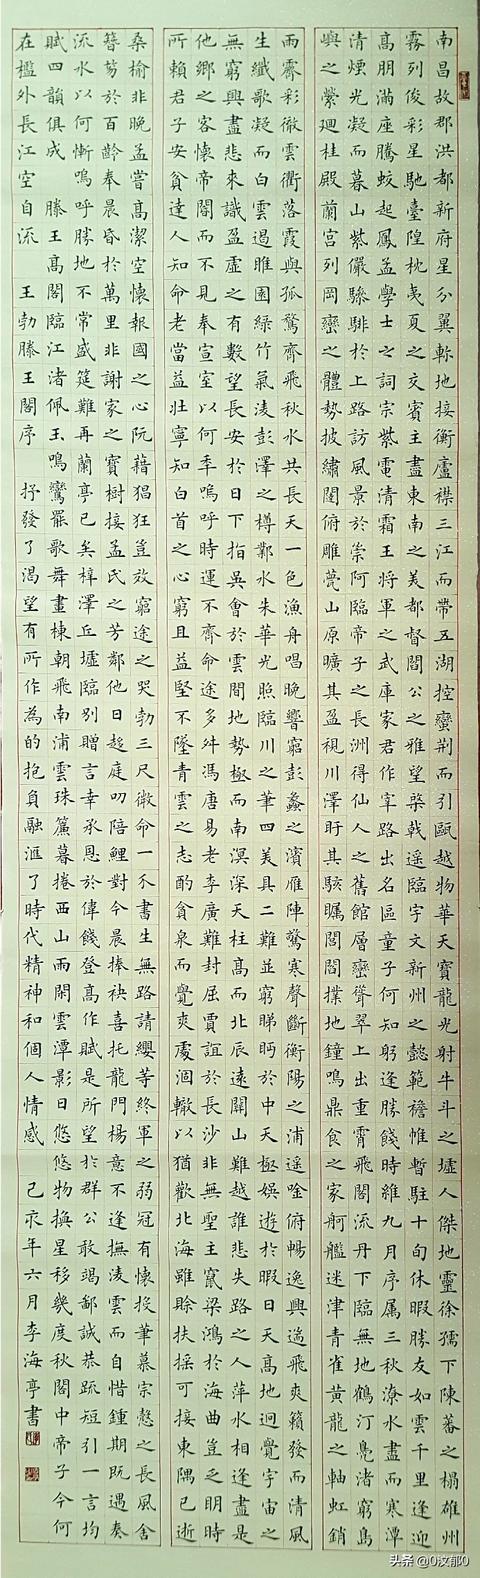 南昌故郡洪都新府星分翼軫地接衡廬襟三江而帶五湖控蠻荊而引甌越物華天寶龍光射牛斗之墟人傑地靈徐孺下陳蕃之榻雄州
霧列俊彩星馳臺隍枕夷夏之交賓主盡東南之美都督閻公之雅望棨戟遥臨宇文新州之懿範襜帷暫駐十旬休暇勝友如雲千里逢迎
高朋滿座騰蛟起鳳孟學士之詞宗紫電清霜王將軍之武庫家君作宰路出名區童子何知躬逢勝餞時維九月序属三秋潦水盡而寒潭
清煙光凝而暮山紫儼驂騑於上路訪風景於崇阿臨帝子之長洲得仙人之舊館層巒聳翠上出重霄飛閣流丹下臨無地鶴汀鳧渚窮島
嶼之縈迴桂殿蘭宮列岡巒之體勢披繡闥俯雕甍山原曠其盈視川澤盱其駭矚閭閻撲地鐘鳴鼎食之家舸艦迷津青雀黃龍之軸虹銷
雨霽彩徹雲衢落霞與孤鶩齊飛秋水共長天一色漁舟唱晚響窮彭蠡之濱雁陣驚寒聲斷衡陽之浦遥唫俯暢逸興遄飛爽籟發而清風
生纖歌凝而白雲遏睢園綠竹氣淩彭澤之樽鄴水朱華光照臨川之筆四美具二難並窮睇眄於中天極娛遊於暇日天高地迥覺宇宙之
無窮興盡悲來識盈虛之有數望長安於日下指吳會於雲間地勢極而南溟深天柱高而北辰遠關山難越誰悲失路之人萍水相逢盡是
他鄉之客懷帝閽而不見奉宣室以何年嗚呼時運不齊命途多舛馮唐易老李廣難封屈賈誼於長沙非無聖主竄梁鴻於海曲豈乏明時
所賴君子安貧達人知命老當益壯寧知白首之心窮且益堅不墜青雲之志酌貪泉而覺爽處涸轍以猶歡北海雖賒扶搖可接東隅已逝
桑榆非晚孟嘗高潔空懷報國之心阮藉猖狂豈放窮途之哭勃三尺微命一介書生無路請纓等終軍之弱冠有懷投筆慕宗愨之長風舍
簪笏於百齡奉晨昏於萬里非謝家之寶樹接孟氏之芳鄰他日趨庭叨陪鯉對今晨捧袂喜托龍門楊意不逢撫淩雲而自惜鍾期既遇奏
流水以何慚嗚呼勝地不常盛筵難再蘭亭已矣梓澤丘墟臨別贈言幸承恩於偉餞登高作賦是所望於群公敢竭鄙誠恭疏短引一言均
賦四韻俱成 滕王高閣臨江渚佩玉鳴鸞罷歌舞畫棟朝飛南浦雲珠簾暮捲西山雨閑雲潭影日悠悠物換星移幾度秋閣中帝子今何
在檻外長江空自流 王勃滕王閣序 抒發了渴望有所作為的抱負融滙了時代精神和個人情感 己亥年六月李海亭書
头条 @0汶郁0